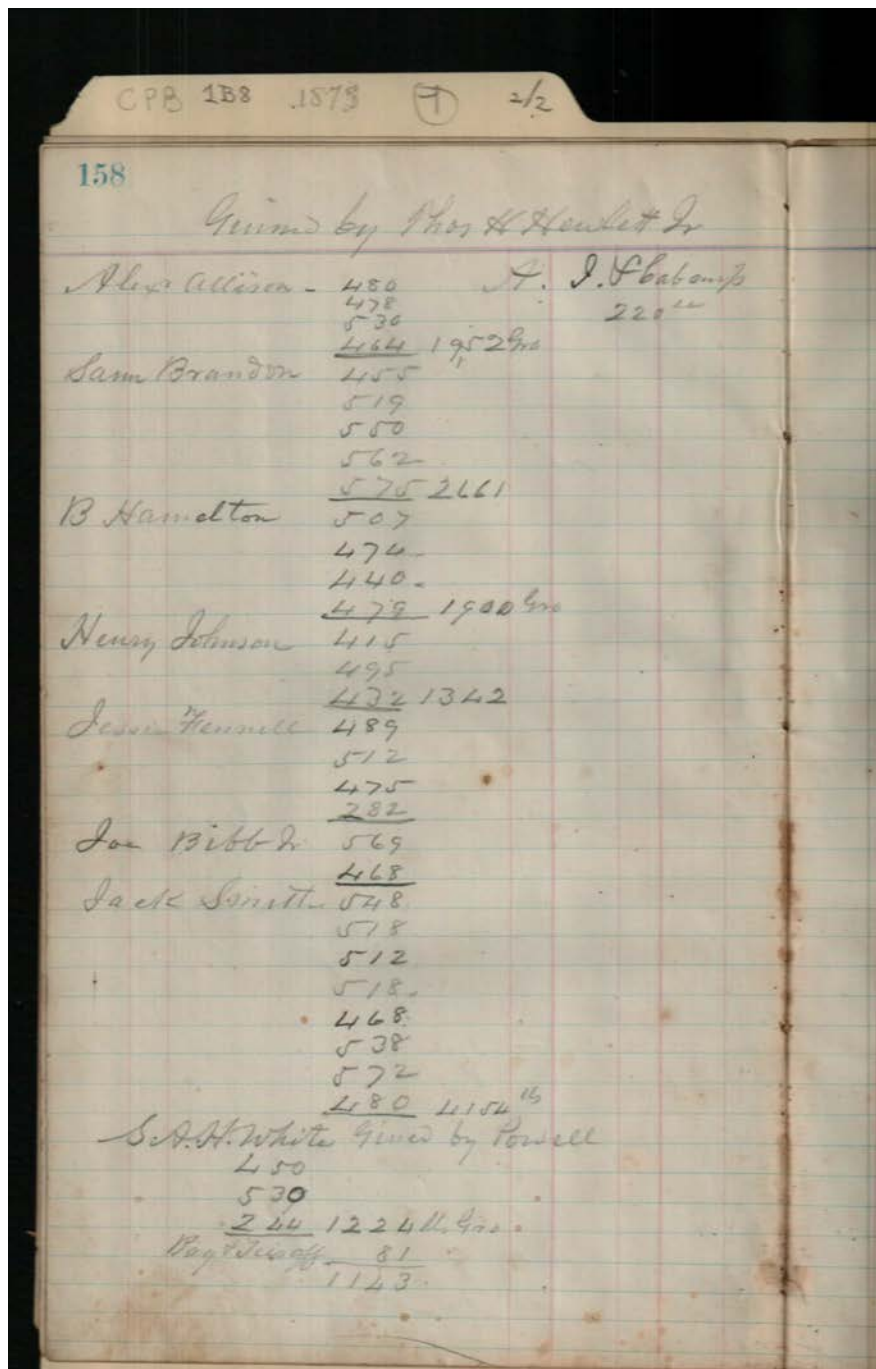 CPB 1B8 1873 1 2/2
158
Ginned by Thos H Hewlett Jr
Alex Allison - 480 A. J.
478 220
530
464 1952 Gro
Sam Brandon 455
519
550
562
575 2661
B Hamelton 507
474
440
479 1900 Gro
Henry Johnson 415
495
432 1342
Jessie Fennell 489
512
475
282
Joe Bibb Jr 569
468
Jack Smith 548
518
512
518
468
538
572
480 4154 lb
S.A.H. White Gined by Powell
450
530
244 1224 Gro
Bag & Ties off 81
1143